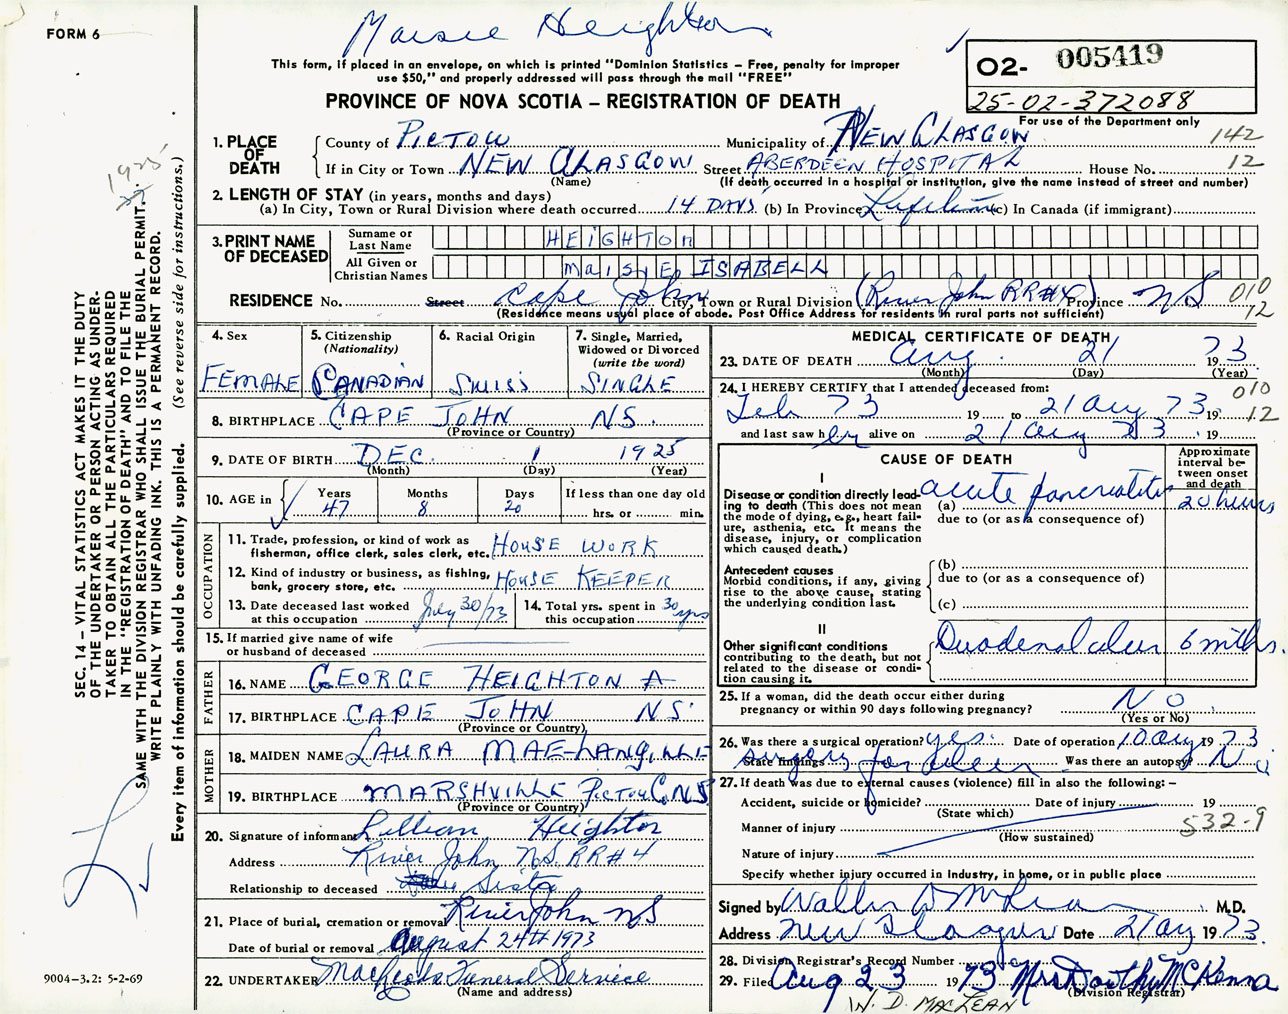 FORM 6
Maisie Heighton
This form, if placed in an envelope, on which is printed "Dominion Statistics – Free, penalty for improper
use $50," and properly addressed will pass through the mail "FREE"
PROVINCE OF NOVA SCOTIA – REGISTRATION OF DEATH
O2- 005419
25-02-372088
For use of the Department only
1. PLACE OF DEATH
County of PICTOU Municipality of NEW GLASGOW 142
If in City or Town NEW GLASGOW Street ABERDEEN HOSPITAL House No. 12
(Name) (If death occurred in a hospital or institution, give the name instead of street and number)
2. LENGTH OF STAY (in years, months and days)
(a) In City, Town or Rural Division where death occurred 14 DAYS (b) In Province Lifetime (c) In Canada (if immigrant)
3. PRINT NAME OF DECEASED
Surname or Last Name HEIGHTON
All Given or Christian Names MAISIE ISABELL
RESIDENCE No. Street Cape John City, Town or Rural Division (River John RR#4) Province NS 010 12
(Residence means usual place of abode. Post Office Address for residents in rural parts not sufficient)
4. Sex FEMALE
5. Citizenship (Nationality) CANADIAN
6. Racial Origin SWISS
7. Single, Married, Widowed or Divorced (write the word) SINGLE
8. BIRTHPLACE CAPE JOHN NS.
(Province or Country)
9. DATE OF BIRTH DEC. 1 1925
(Month) (Day) (Year)
10. AGE in Years 47 Months 8 Days 20 If less than one day old hrs. or min.
OCCUPATION
11. Trade, profession, or kind of work as fisherman, office clerk, sales clerk, etc. HOUSE WORK
12. Kind of industry or business, as fishing, bank, grocery store, etc. HOUSE KEEPER
13. Date deceased last worked at this occupation July 30/73
14. Total yrs. spent in this occupation 30 yrs
15. If married give name of wife or husband of deceased
FATHER
16. NAME GEORGE HEIGHTON A
17. BIRTHPLACE CAPE JOHN NS.
(Province or Country)
MOTHER
18. MAIDEN NAME LAURA MAE LANGILLE
19. BIRTHPLACE MARSHVILLE PICTOU C. N.S
(Province or Country)
20. Signature of informant Lillian Heighton
Address River John N.S. RR#4
Relationship to deceased Sister
21. Place of burial, cremation or removal River John NS
Date of burial or removal August 24TH 1973
22. UNDERTAKER Funeral Service
(Name and address)
MEDICAL CERTIFICATE OF DEATH
23. DATE OF DEATH Aug. 21 1973
(Month) (Day) (Year)
24. I HEREBY CERTIFY that I attended deceased from: 010
Feb 73 19 to 21 Aug 73 19 12
and last saw her alive on 21 Aug 73 19
CAUSE OF DEATH
Approximate interval between onset and death
I
Disease or condition directly leading to death (This does not mean the mode of dying, e.g., heart failure, asthenia, etc. It means the disease, injury, or complication which caused death.)
(a) acute pancreatitis 20 hours
due to (or as a consequence of)
Antecedent causes
Morbid conditions, if any, giving rise to the above cause, stating the underlying condition last.
(b)
due to (or as a consequence of)
(c)
II
Other significant conditions contributing to the death, but not related to the disease or condition causing it.
Duodenal ulcer 6 mths.
25. If a woman, did the death occur either during pregnancy or within 90 days following pregnancy? NO
(Yes or No)
26. Was there a surgical operation? yes. Date of operation 10 Aug 1973
State findings surgery for ulcer Was there an autopsy? No
27. If death was due to external causes (violence) fill in also the following: –
Accident, suicide or homicide? Date of injury 19
(State which)
Manner of injury 532-9
(How sustained)
Nature of injury
Specify whether injury occurred in industry, in home, or in public place
Signed by Walter D McLean M.D.
Address New Glasgow Date 21 Aug 1973
28. Division Registrar's Record Number
29. Filed Aug 23 1973 Mrs Dorothy McKenna
(Division Registrar)
W. D. MACLEAN
1925
SEC. 14 – VITAL STATISTICS ACT MAKES IT THE DUTY
OF THE UNDERTAKER OR PERSON ACTING AS UNDER-
TAKER TO OBTAIN ALL THE PARTICULARS REQUIRED
IN THE "REGISTRATION OF DEATH" AND TO FILE THE
SAME WITH THE DIVISION REGISTRAR WHO SHALL ISSUE THE BURIAL PERMIT.
WRITE PLAINLY WITH UNFADING INK. THIS IS A PERMANENT RECORD.
Every item of information should be carefully supplied. (See reverse side for instructions.)
9004-3.2: 5-2-69